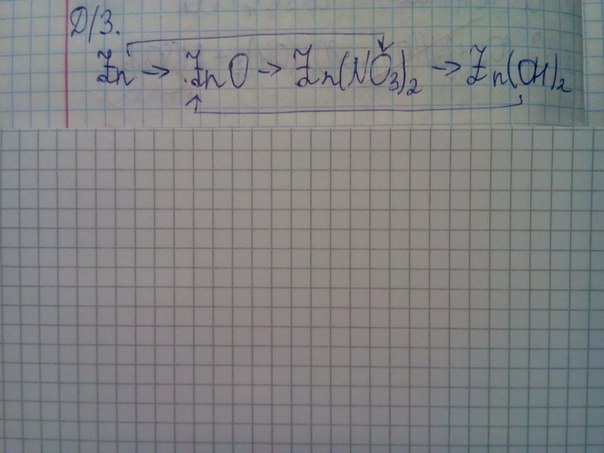 Д/З.
Zn → ZnO → Zn(NO₃)₂ → Zn(OH)₂